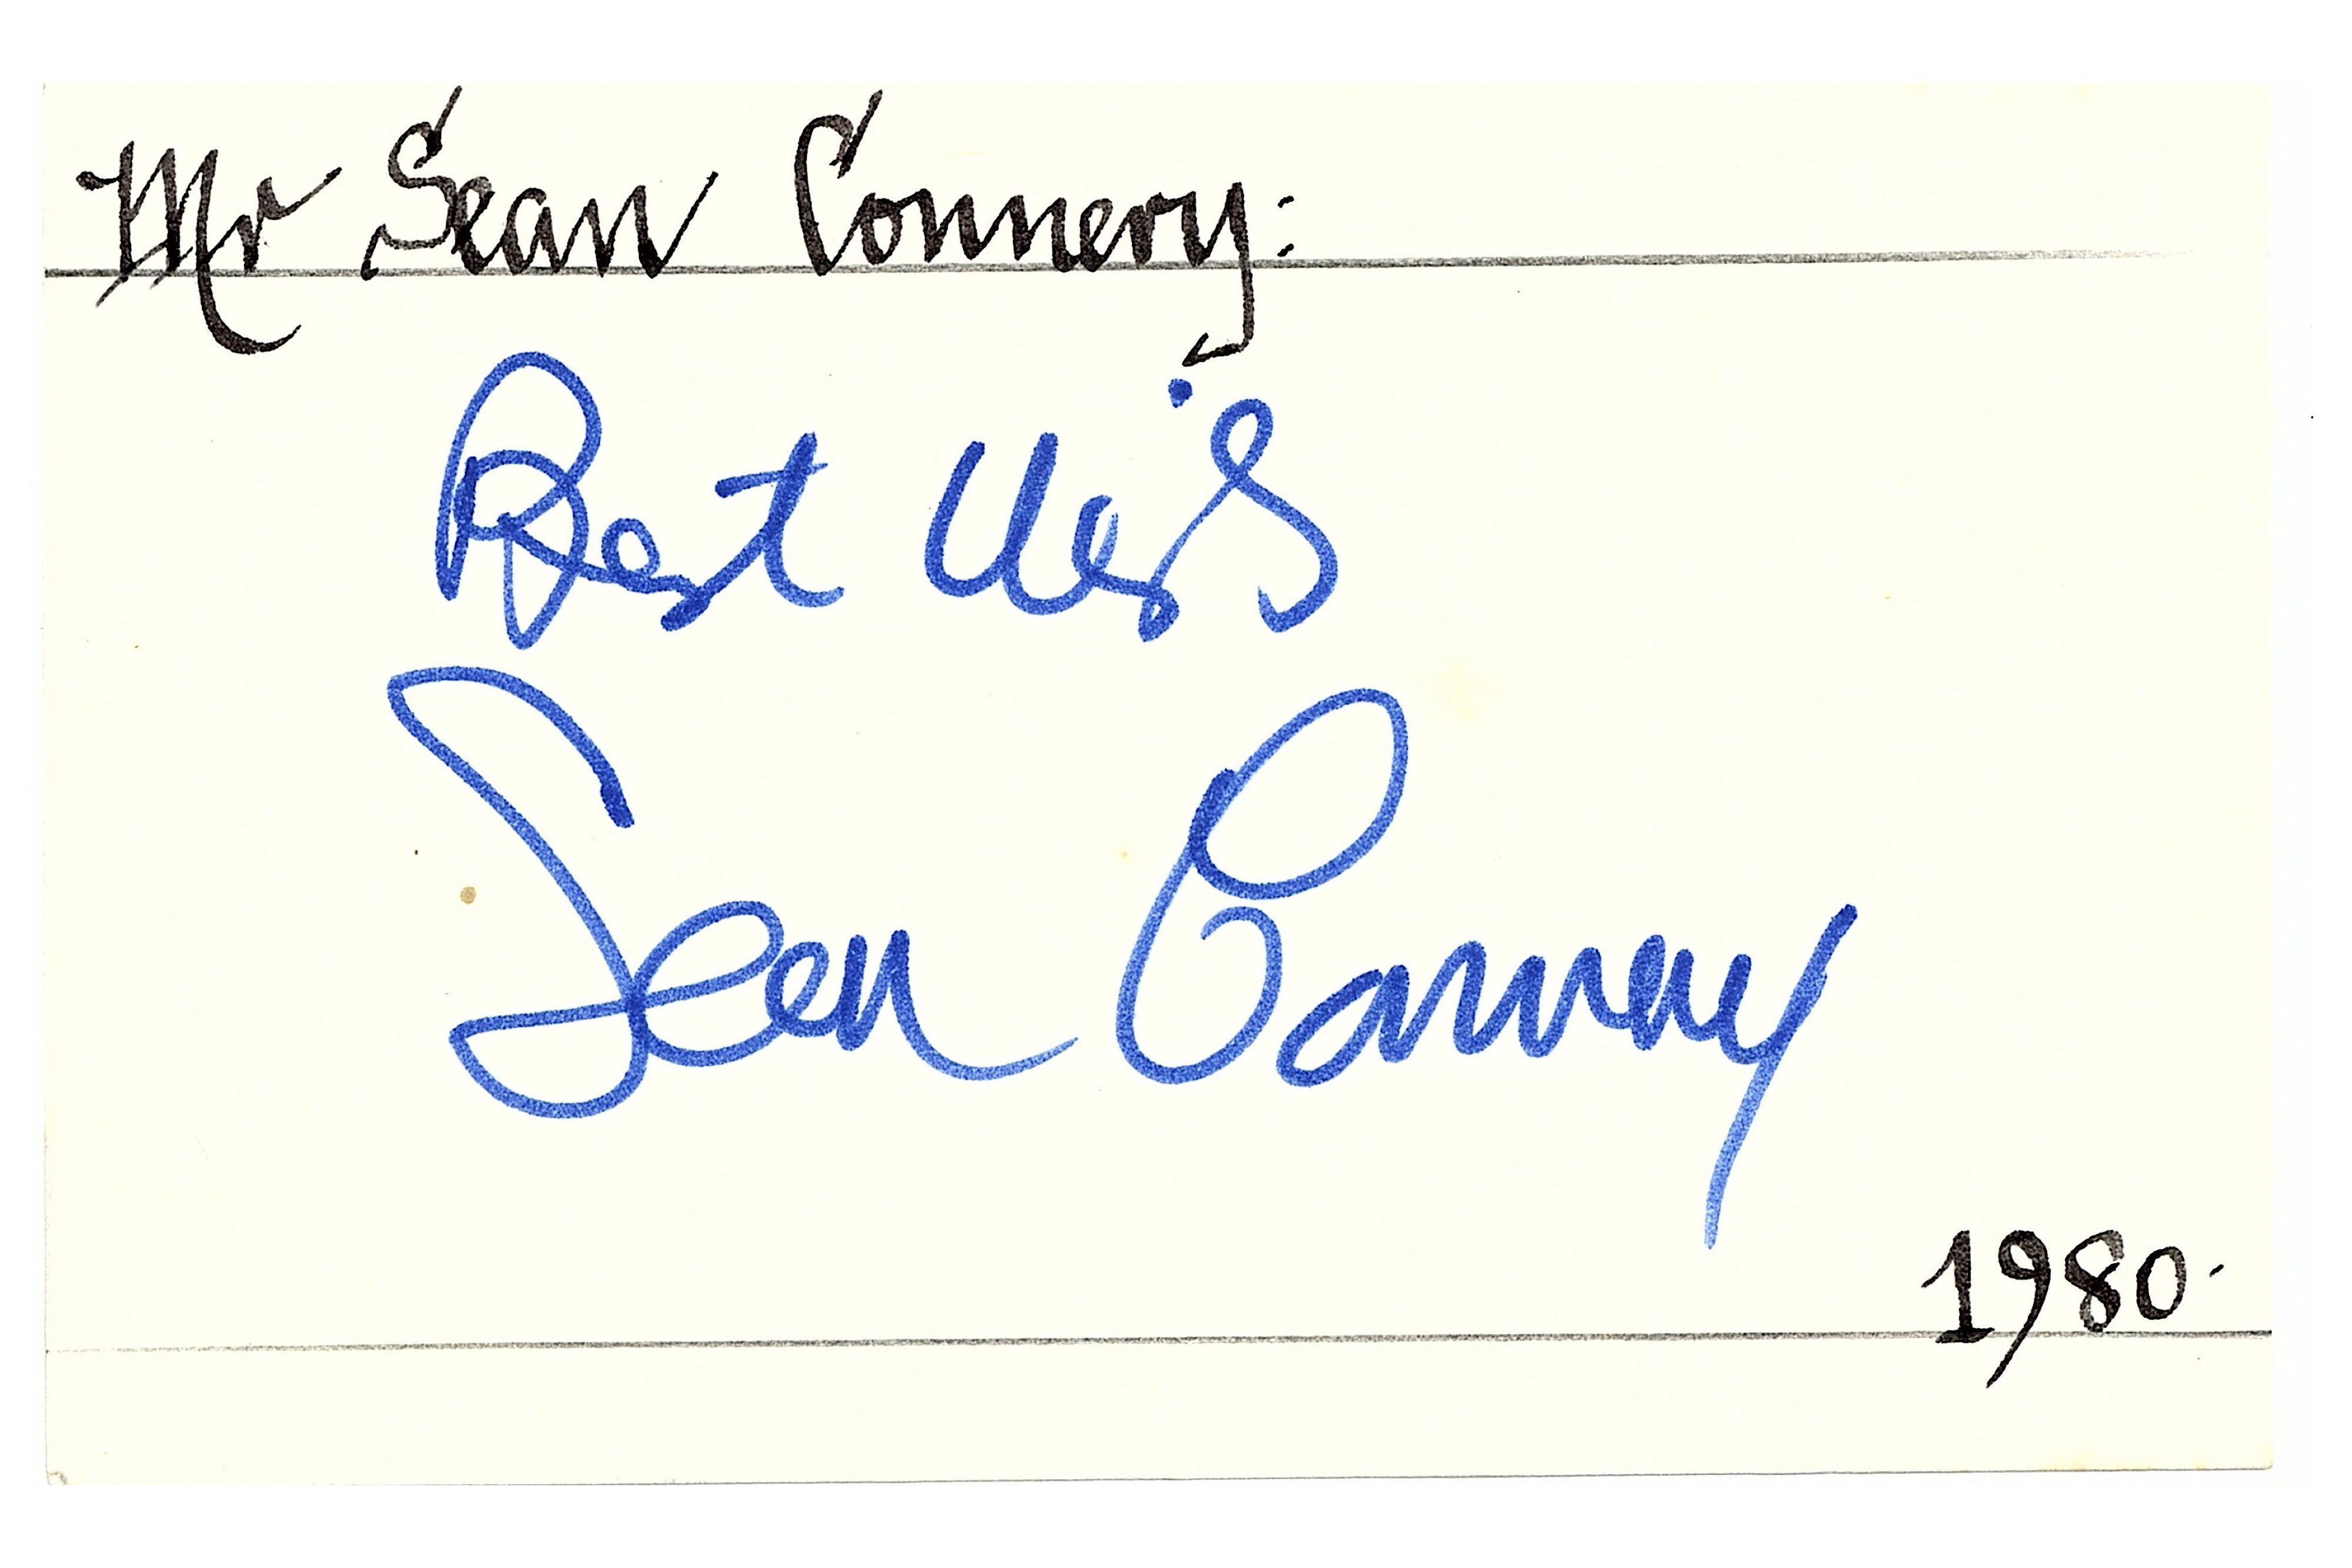 Mr Sean Connery:
Best
Sean Connery
1980.